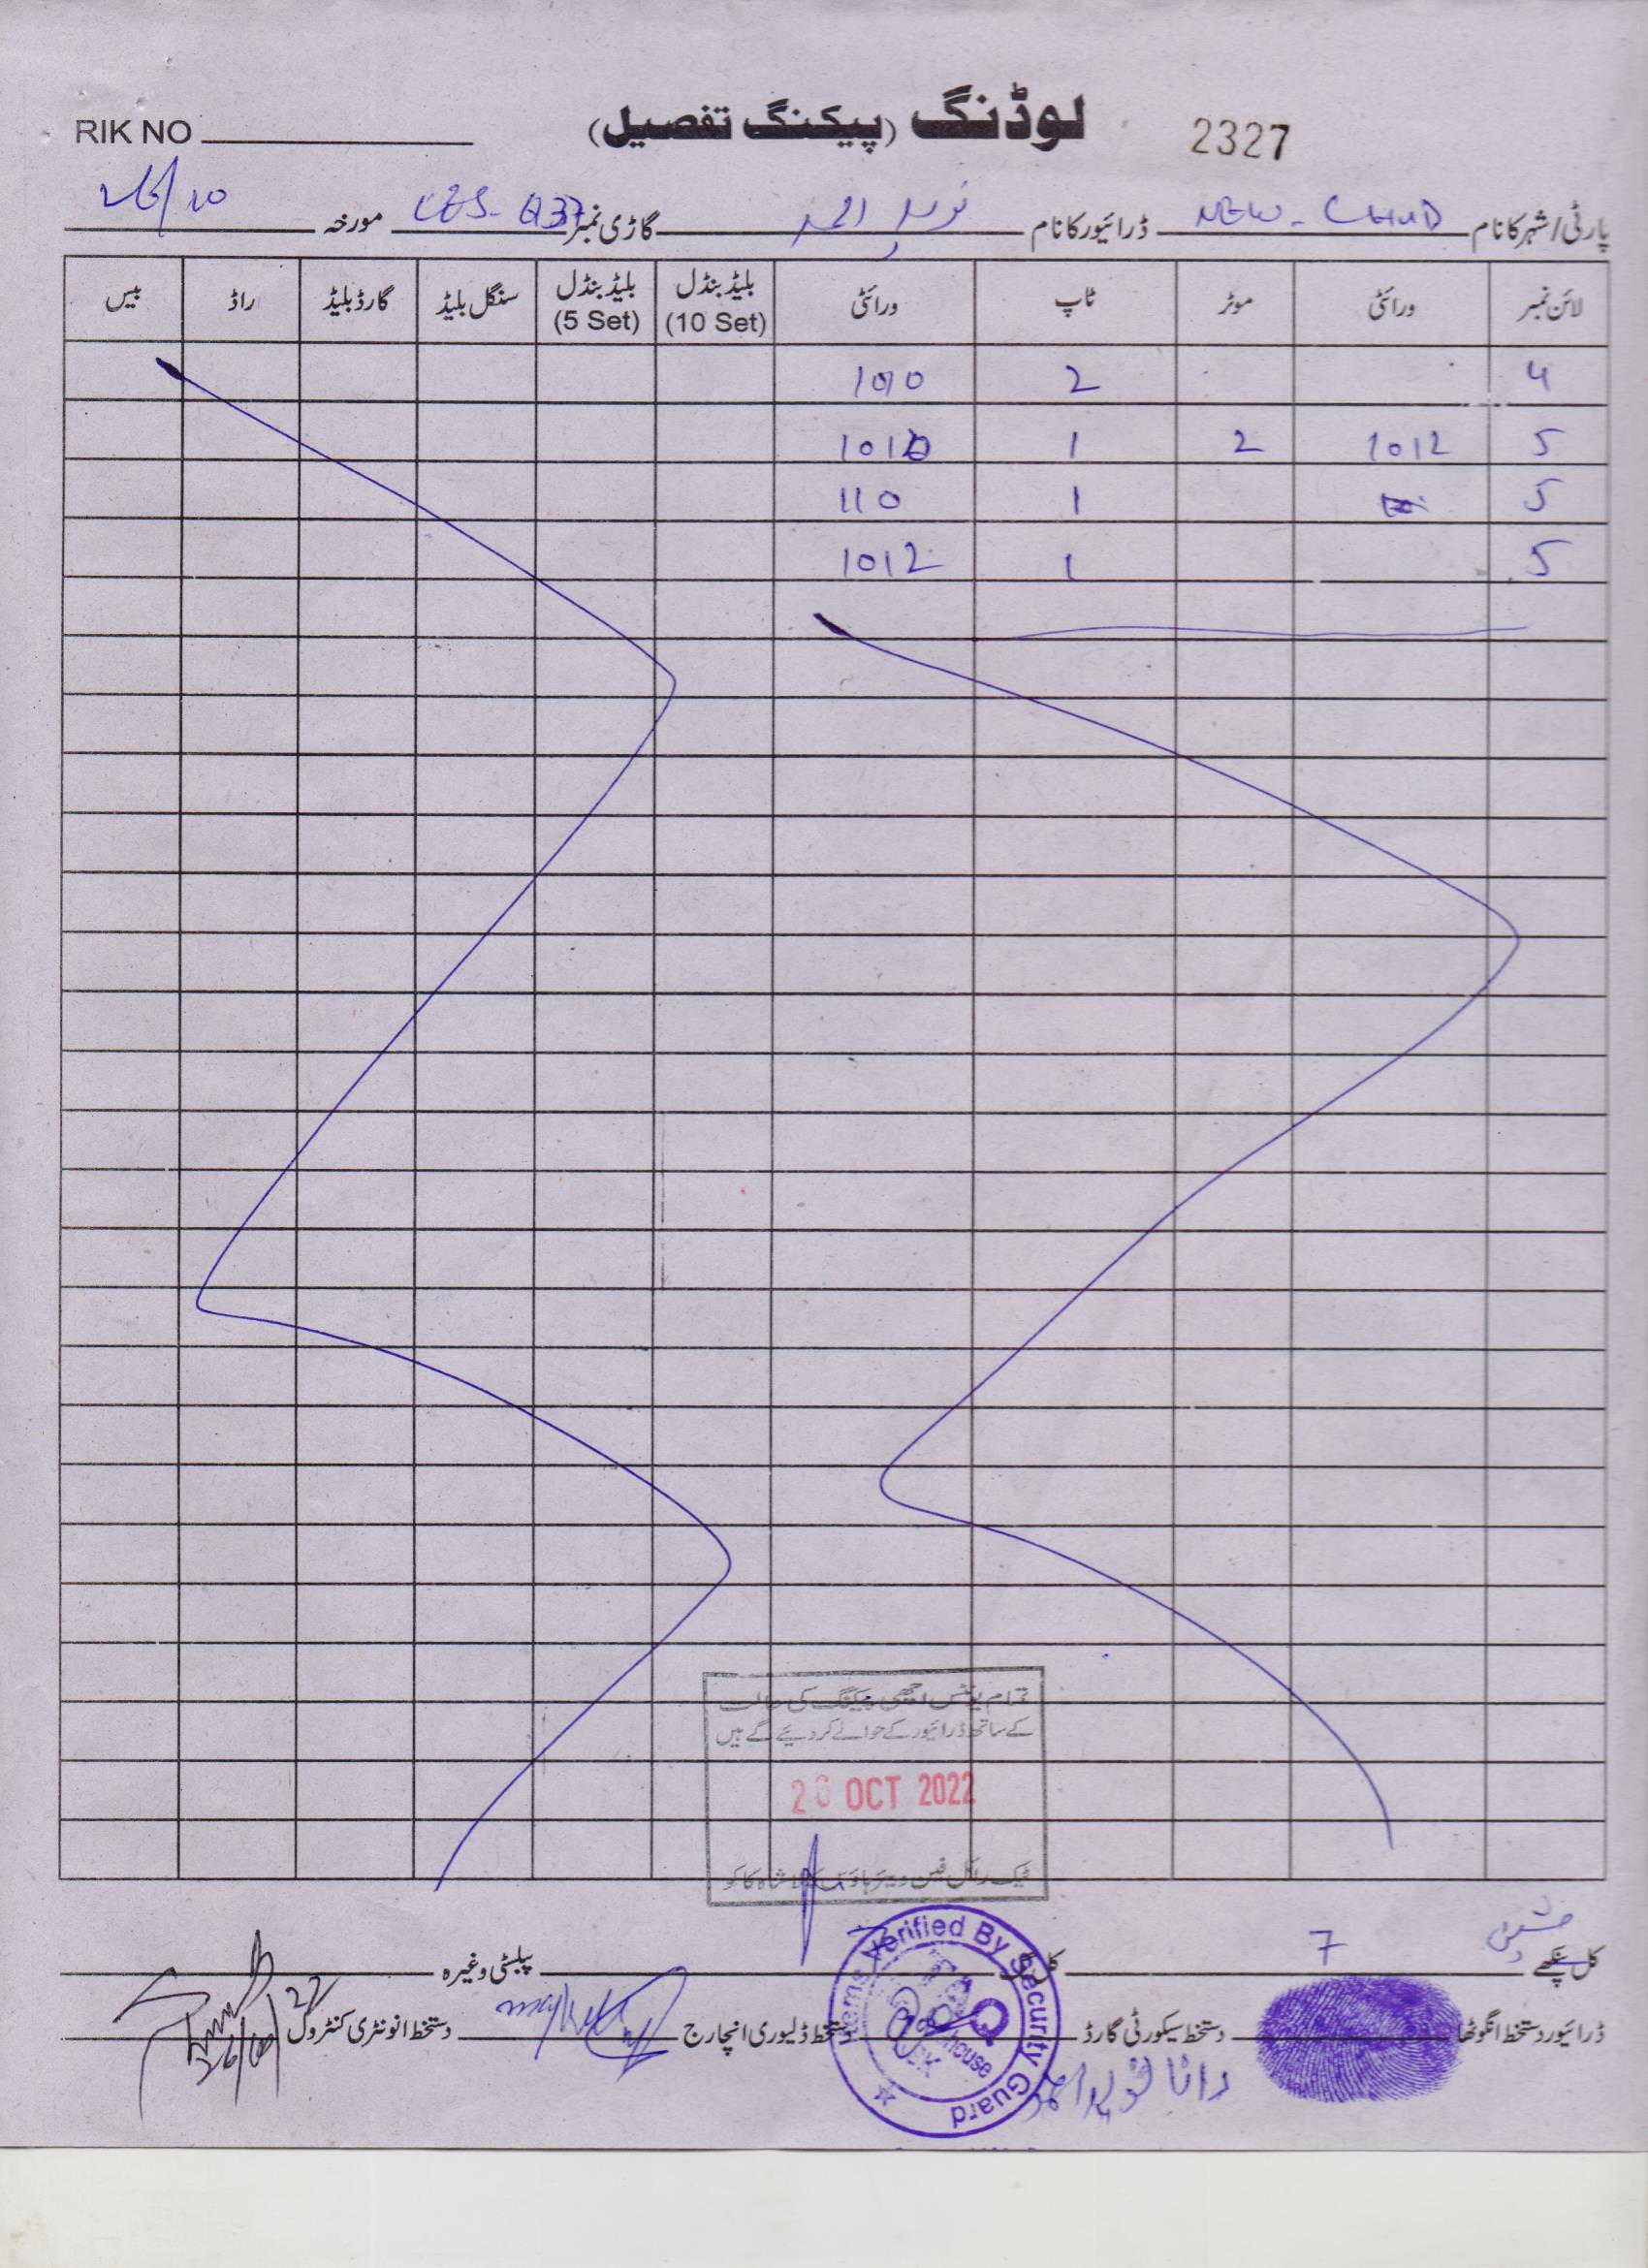 RIK NO لوڈنگ (پیکنگ تفصیل) 2327
پارٹی/شہر کا نام NEW - ڈرائیور کا نام نوید احمد گاڑی نمبر مورخہ 26/10
لائن نمبر ورائٹی موٹر ٹاپ ورائٹی بلیڈ بنڈل (10 Set) بلیڈ بنڈل (5 Set) سنگل بلیڈ گارڈ بلیڈ راڈ بیس
4 2 1010
5 1012 2 1
5 1 110
5 1 1012
تمام یونٹس اچھی پیکنگ کی حالت
کے ساتھ ڈرائیور کے حوالے کر دیئے گے ہیں
26 OCT 2022
شاہ کا کو
کل پنکھے 7 کل پبلسٹی وغیرہ
ڈرائیور دستخط انگوٹھا دستخط سیکورٹی گارڈ دستخط ڈلیوری انچارج دستخط انونٹری کنٹرول
رانا نوید احمد
Items Verified By Security Guard